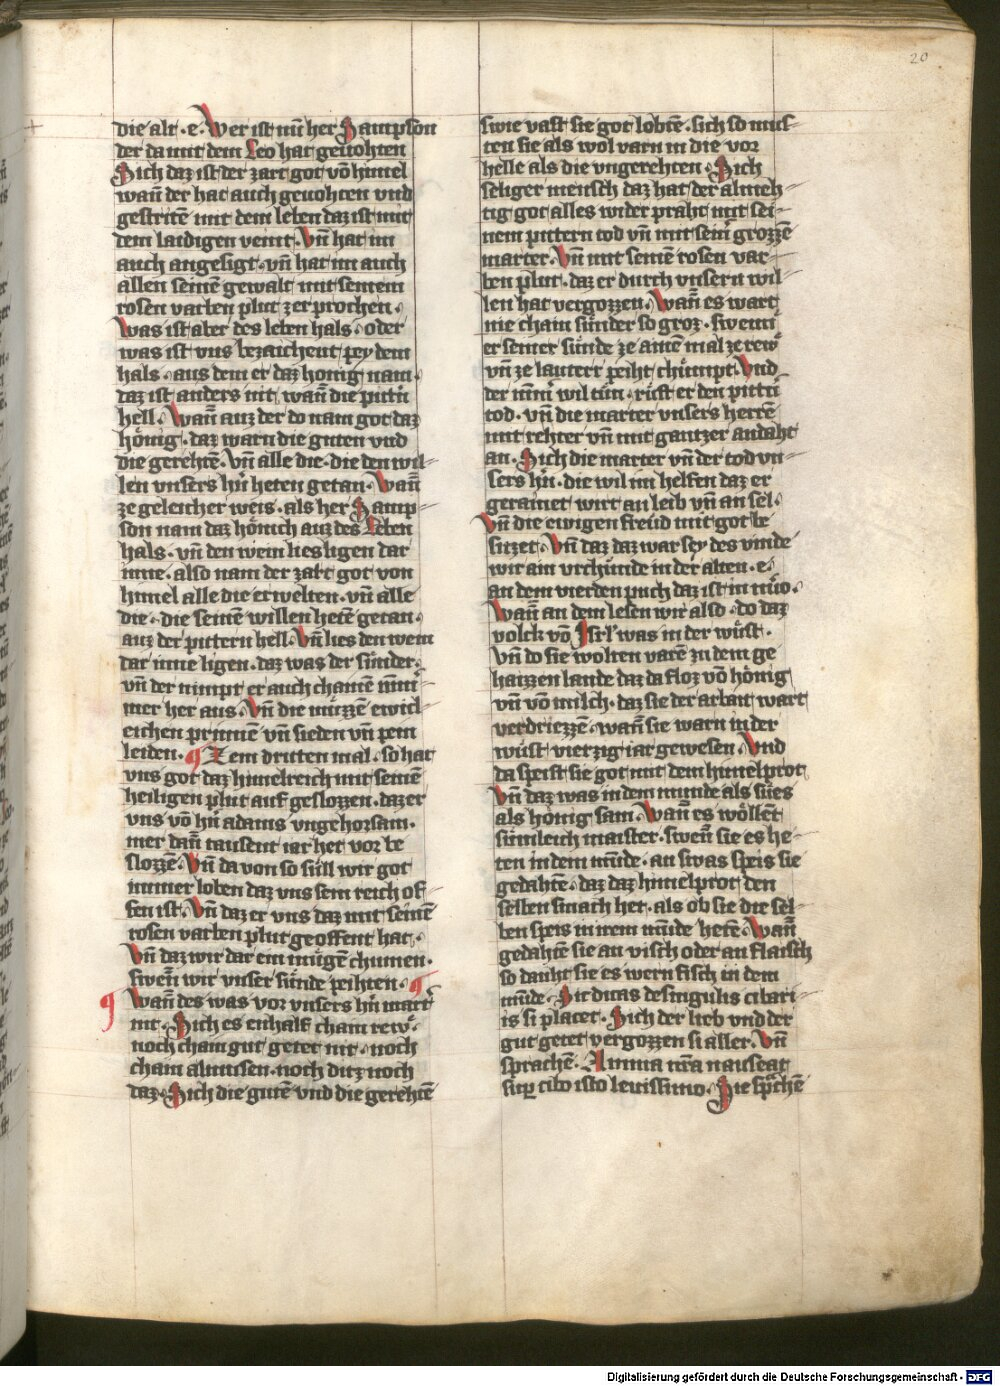 20
die alt · e · Wer ist nu᷑ her Sampson
der da mit dem Leo hat geuohten
Sich daz ist der zart got vō himel
wan̄ der hat auch geuohten vnd
gestritē mit dem leben daz ist mit
dem laidigen veint · Vn̄ hat im
auch angesigt · vn̄ hat im auch
allen seinē gewalt mit seinem
rosen varben plut zerprochen ·
Was ist aber des leben hals · oder
was ist vns bezaichent pey dem
hals · aus dem er daz honig nam ·
daz ist anders nit · wan̄ die pittn̄
hell · Wan̄ auz der do nam got daz
hönig · daz warn die guten vnd
die gerehtē · Vn̄ alle die · die den wil-
len vnsers hn̄ heten getan · Wan̄
ze geleicher weis · als her Samp-
son nam daz hönich auz des Leben
hals · vn̄ den wein lies ligen dar
inne · also nam der zart got von
himel alle die erwelten · vn̄ alle
die · die seinē willen hetē getan ·
auz der pittern hell · Vn̄ lies den wein
dar inne ligen · daz was der sünder ·
vn̄ der nimpt er auch chainē nim̄-
mer her aus · Vn̄ die müzzē ewic-
eichen prinnē vn̄ sieden vn̄ pein
leiden · Zem dritten mal · so hat
vns got daz himelreich mit seinē
heiligen plut auf geslozzen · daz er
vns vō hn̄ adams vngehorsam ·
mer dan̄ tausent iar het vor be
slozzē · Vn̄ da von so süll wir got
immer loben daz vns sein reich of-
fen ist · Vn̄ daz er vns daz mit seinē
rosen varben plut geoffent hat ·
Vn̄ daz wir dar ein mügē chumen ·
swen̄ wir vnser sünde peihten ·
Wan̄ des was vor vnsers hn̄ mart̄
nit · Sich es enhalf chain rew ·
noch chain gut getet nit · noch
chain almusen · noch ditz noch
daz · Sich die gutē vnd die gerehtē
swie vast sie got lobtē · sich so mus-
ten sie als wol varn in die vor
helle als die vngerehten · Sich
seliger mensch daz hat der almeh-
tig got alles wider praht mit sei-
nem pittern tod vn̄ mit sein̄ grozzē
marter · Vn̄ mit seinē rosen var-
ben plut · daz er durch vnsern wil-
len hat vergozzen · Wan̄ es wart
nie chain sünder so groz · swenn̄
er seiner sünde ze ainē mal ze rew
vn̄ ze lauterr peiht chümpt · Vnd
der nim̄ wil tün · rüft er den pittn̄
tod · vn̄ die marter vnsers herrē
mit rehter vn̄ mit gantzer andaht
an · Sich die marter vn̄ der tod vn-
sers hn̄ · die wil im helfen daz er
gerainet wirt an leib vn̄ an sel ·
Vn̄ die ewigen freüd mit got be
sitzet · Vn̄ daz daz war sey des vinde
wir ain vrchünde in der alten · e ·
an dem vierden puch daz ist in nūo ·
Wan̄ an dem lesen wir also · do daz
volck vō Isrl' was in der wüst ·
Vn̄ do sie wolten varē zu dem ge
haizzen lande daz da floz vō hönig
vn̄ vō milch · daz sie der arbait wart
verdriezzē · wan̄ sie warn in der
wüst vierzig iar gewesen · Vnd
da speist sie got mit dem himelprot
Vn̄ daz was in dem munde als sües
als hönig sam · Wan̄ es wöllent
sümleich maister · swen̄ sie es he-
ten in dem mūde · an swas speis sie
gedahtē · daz daz himelprot den
selben smach het · als ob sie die sel-
ben speis in irem mūde hetē · Wan̄
gedahtē sie an visch oder an flaisch
so dauht sie es wern fisch in dem
mūde · Sic dicas de singulis cibari-
is si placet · Sich der lieb vnd der
gut getet vergozzen si aller · Vn̄
sprachē · Anima nr̄a nauseat
sup̱ cibo isto leuissimo · Sie sp̄chē
Digitalisierung gefördert durch die Deutsche Forschungsgemeinschaft - DFG